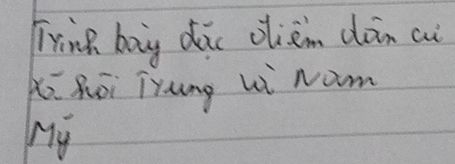 Trình bày đặc điểm dân cư
xã hội Trung và Nam
Mỹ